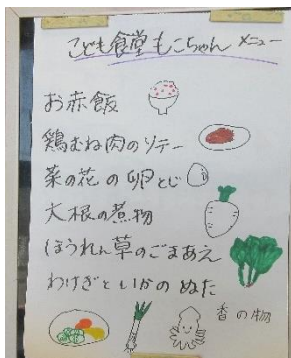 こども食堂もこちゃん メニュー
お赤飯
鶏むね肉のソテー
菜の花の卵とじ
大根の煮物
ほうれん草のごまあえ
わけぎといかのぬた
香の物